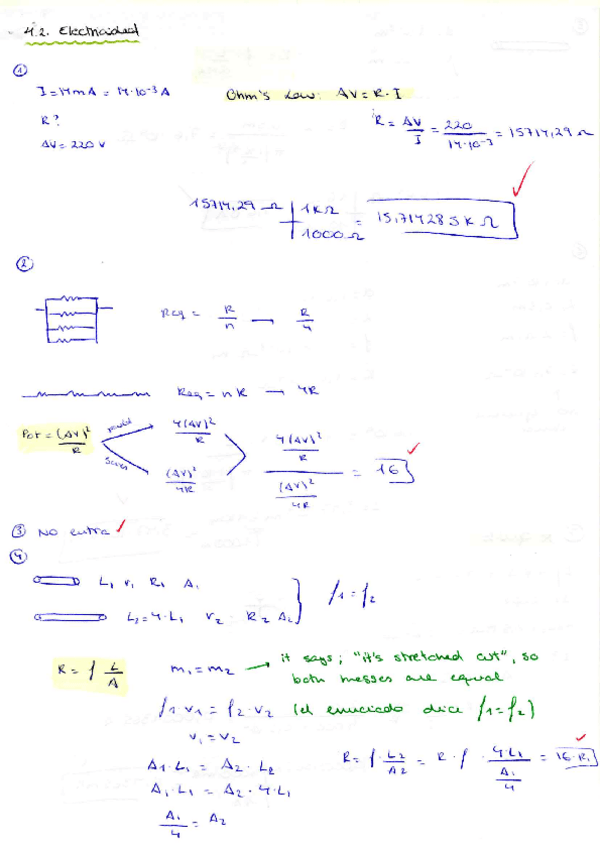 4.2. Electricidad
①
I = 14mA = 14·10⁻³ A
Ohm's Law: ΔV = R·I
R?
R = ΔV/I = 220/14·10⁻³ = 15714,29 Ω
ΔV = 220 V
15714,29 Ω | 1KΩ/1000Ω = 15,714285 K Ω
②
Req = R/n → R/4
Req = n R → 4R
Pot = (ΔV)²/R
4(ΔV)²/R
Series
(ΔV)²/4R
4(ΔV)²/R / (ΔV)²/4R = 16
③ No entra
④
L₁ V₁ R₁ A₁
L₂ = 4·L₁ V₂ R₂ A₂
ρ1 = ρ2
R = ρ L/A
m₁ = m₂ → it says; "it's stretched out", so
both masses are equal
ρ1·V1 = ρ2·V2 (el enunciado dice ρ1 = ρ2)
V₁ = V₂
A1·L₁ = A2·L2
R = ρ·L2/A2 = R·ρ·4·L1/A1/4 = 16·R₁
A₁·L₁ = A2·4·L₁
A₁/4 = A2